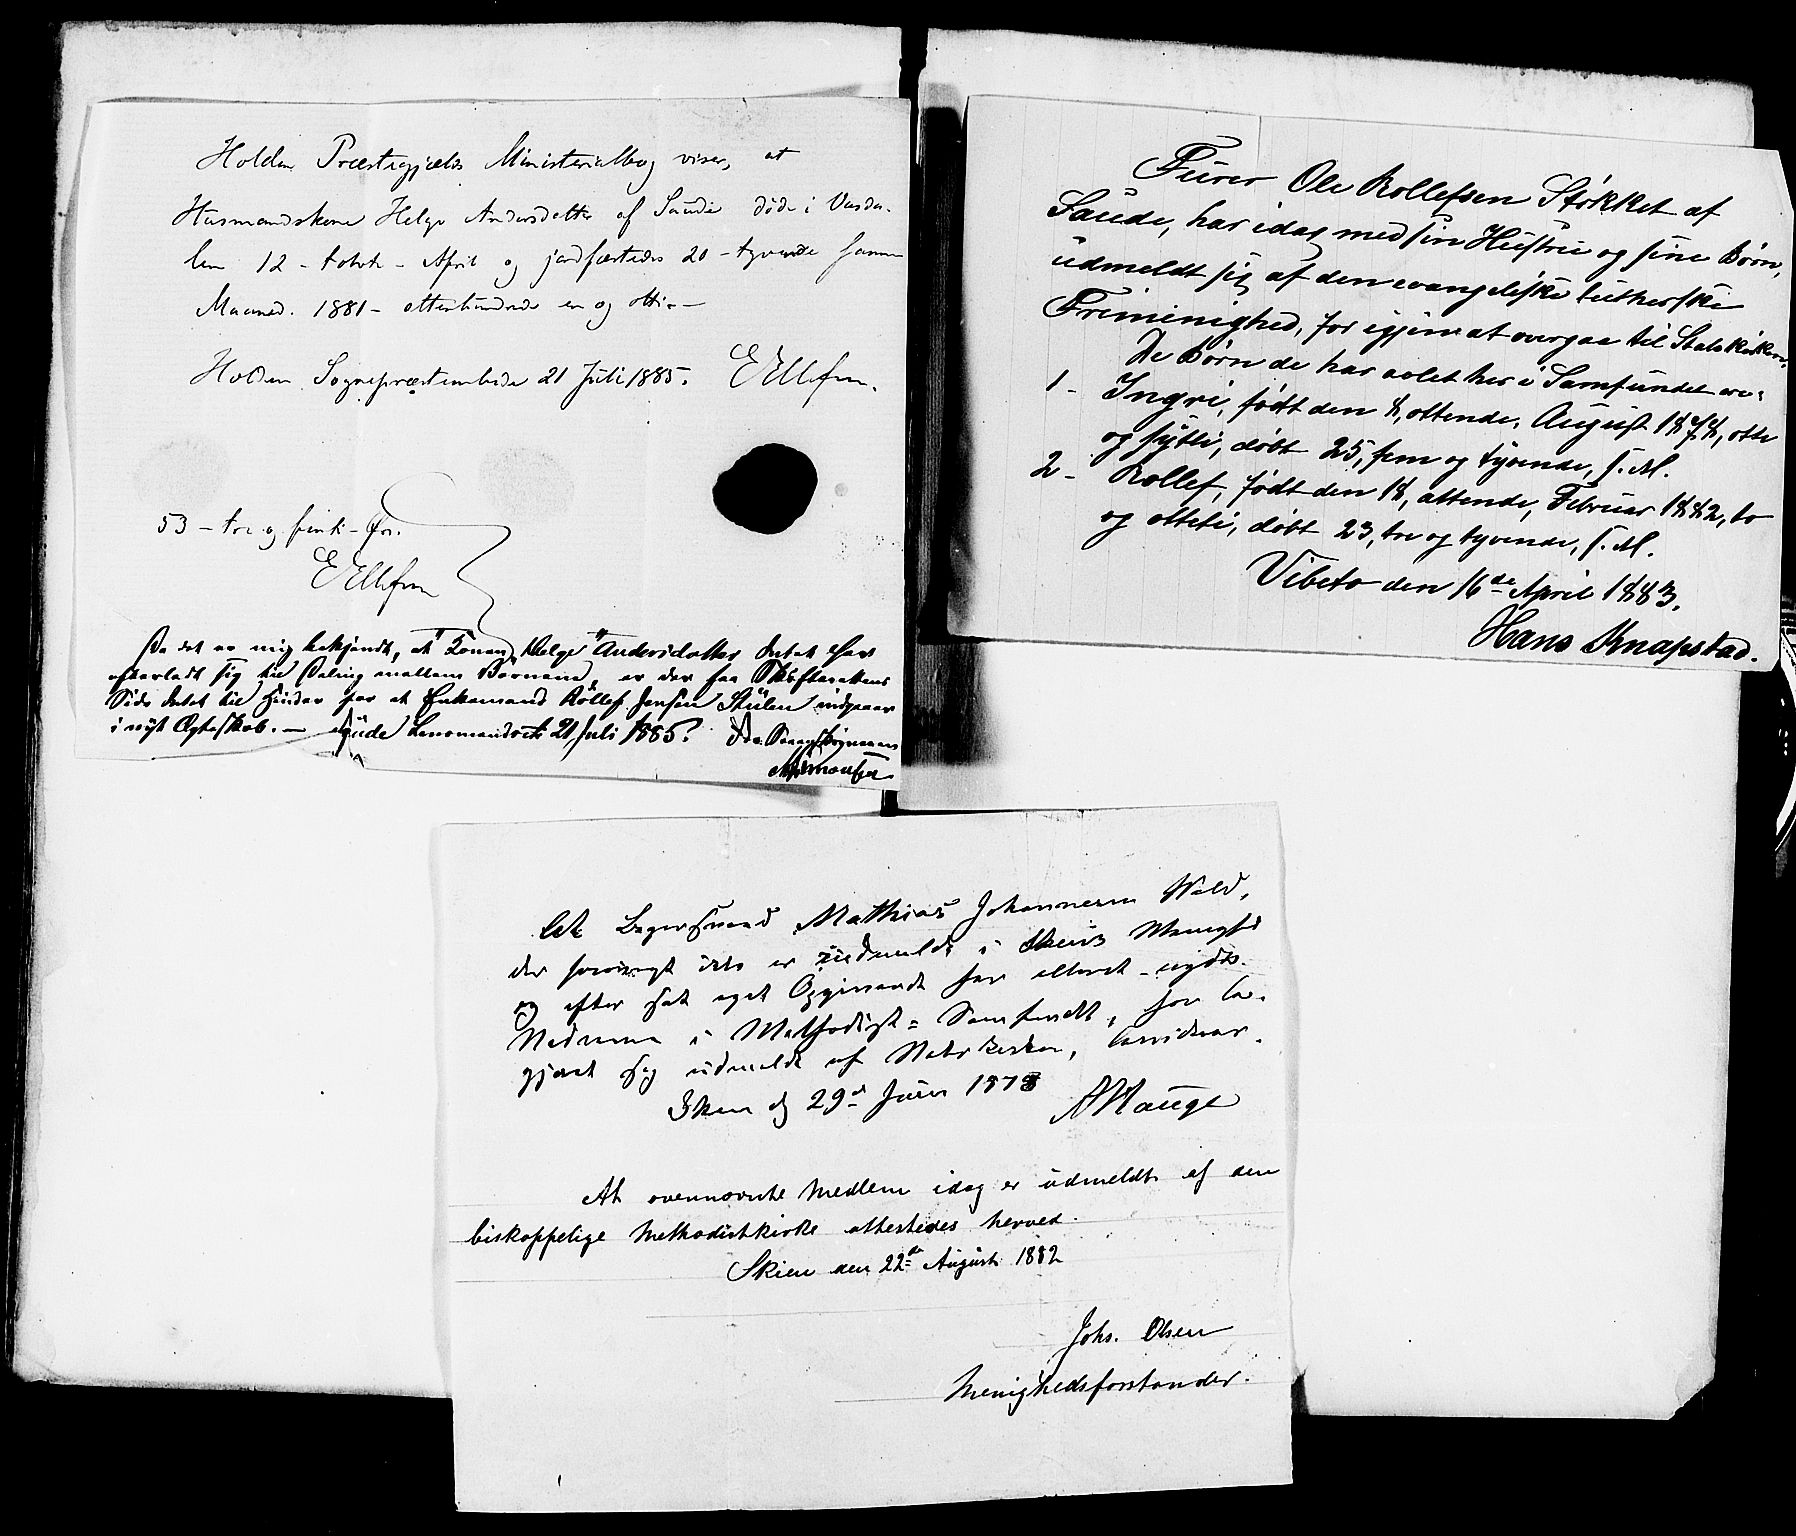 Holden Præstegjælds Ministerialbog viser, at
Husmandskone Helge Andersdatter af Saude døde i Vasda-
len 12 - tolvte - April og jordfæstedes 20 - tyvende samme
Maaned. 1881 - attenhundrede en og otti -
Holden Sognepræstembede 21 Juli 1885. E Ellefsen.
53 - tre og femti - Øre.
E Ellefsen
Da det er mig bekjendt, at Konen Helge Andersdatter Intet har
efterladt sig til Deling mellem Børnene, er der fra Skifterettens
Side Intet til Hinder for at Enkemand Rollef Jensen indgaaer
i nyt Ægteskab. - Lensmandsct 21 Juli 1885.
Furer Ole Rollefsen Støkket af
Saude, har idag med sin Hustru og sine Børn,
udmeldt sig af den evangeliske lutherske
Frimenighed, for igjen at overgaa til Statskirken.
De Børn de har avlet her i Samfundet ere:
1 - Ingri, født den 8, ottende, August 1878, otte
og sytti, døbt 25, fem og tyvende, s. M.
2 - Rollef, født den 18, attende, Februar 1882, to
og otteti, døbt 23, tre og tyvende, s. M.
Vibeto den 16de April 1883.
Hans Knapstad.
At Bagersvend Mathias Johannesen Wold,
der forøvrigt ikke er indmeldt i Skiens Menighed
og efter sit eget Opgivende har allerede
i Methodist=Samfundet, har
gjort sig udmeldt af Statskirken,
Skien d 29de Juni 1878 A Hauge
At ovennævnte Medlem idag er udmeldt af den
biskoppelige Methodistkirke attesteres herved.
Skien den 22de August 1882
Johs. Olsen
Menighedsforstander.